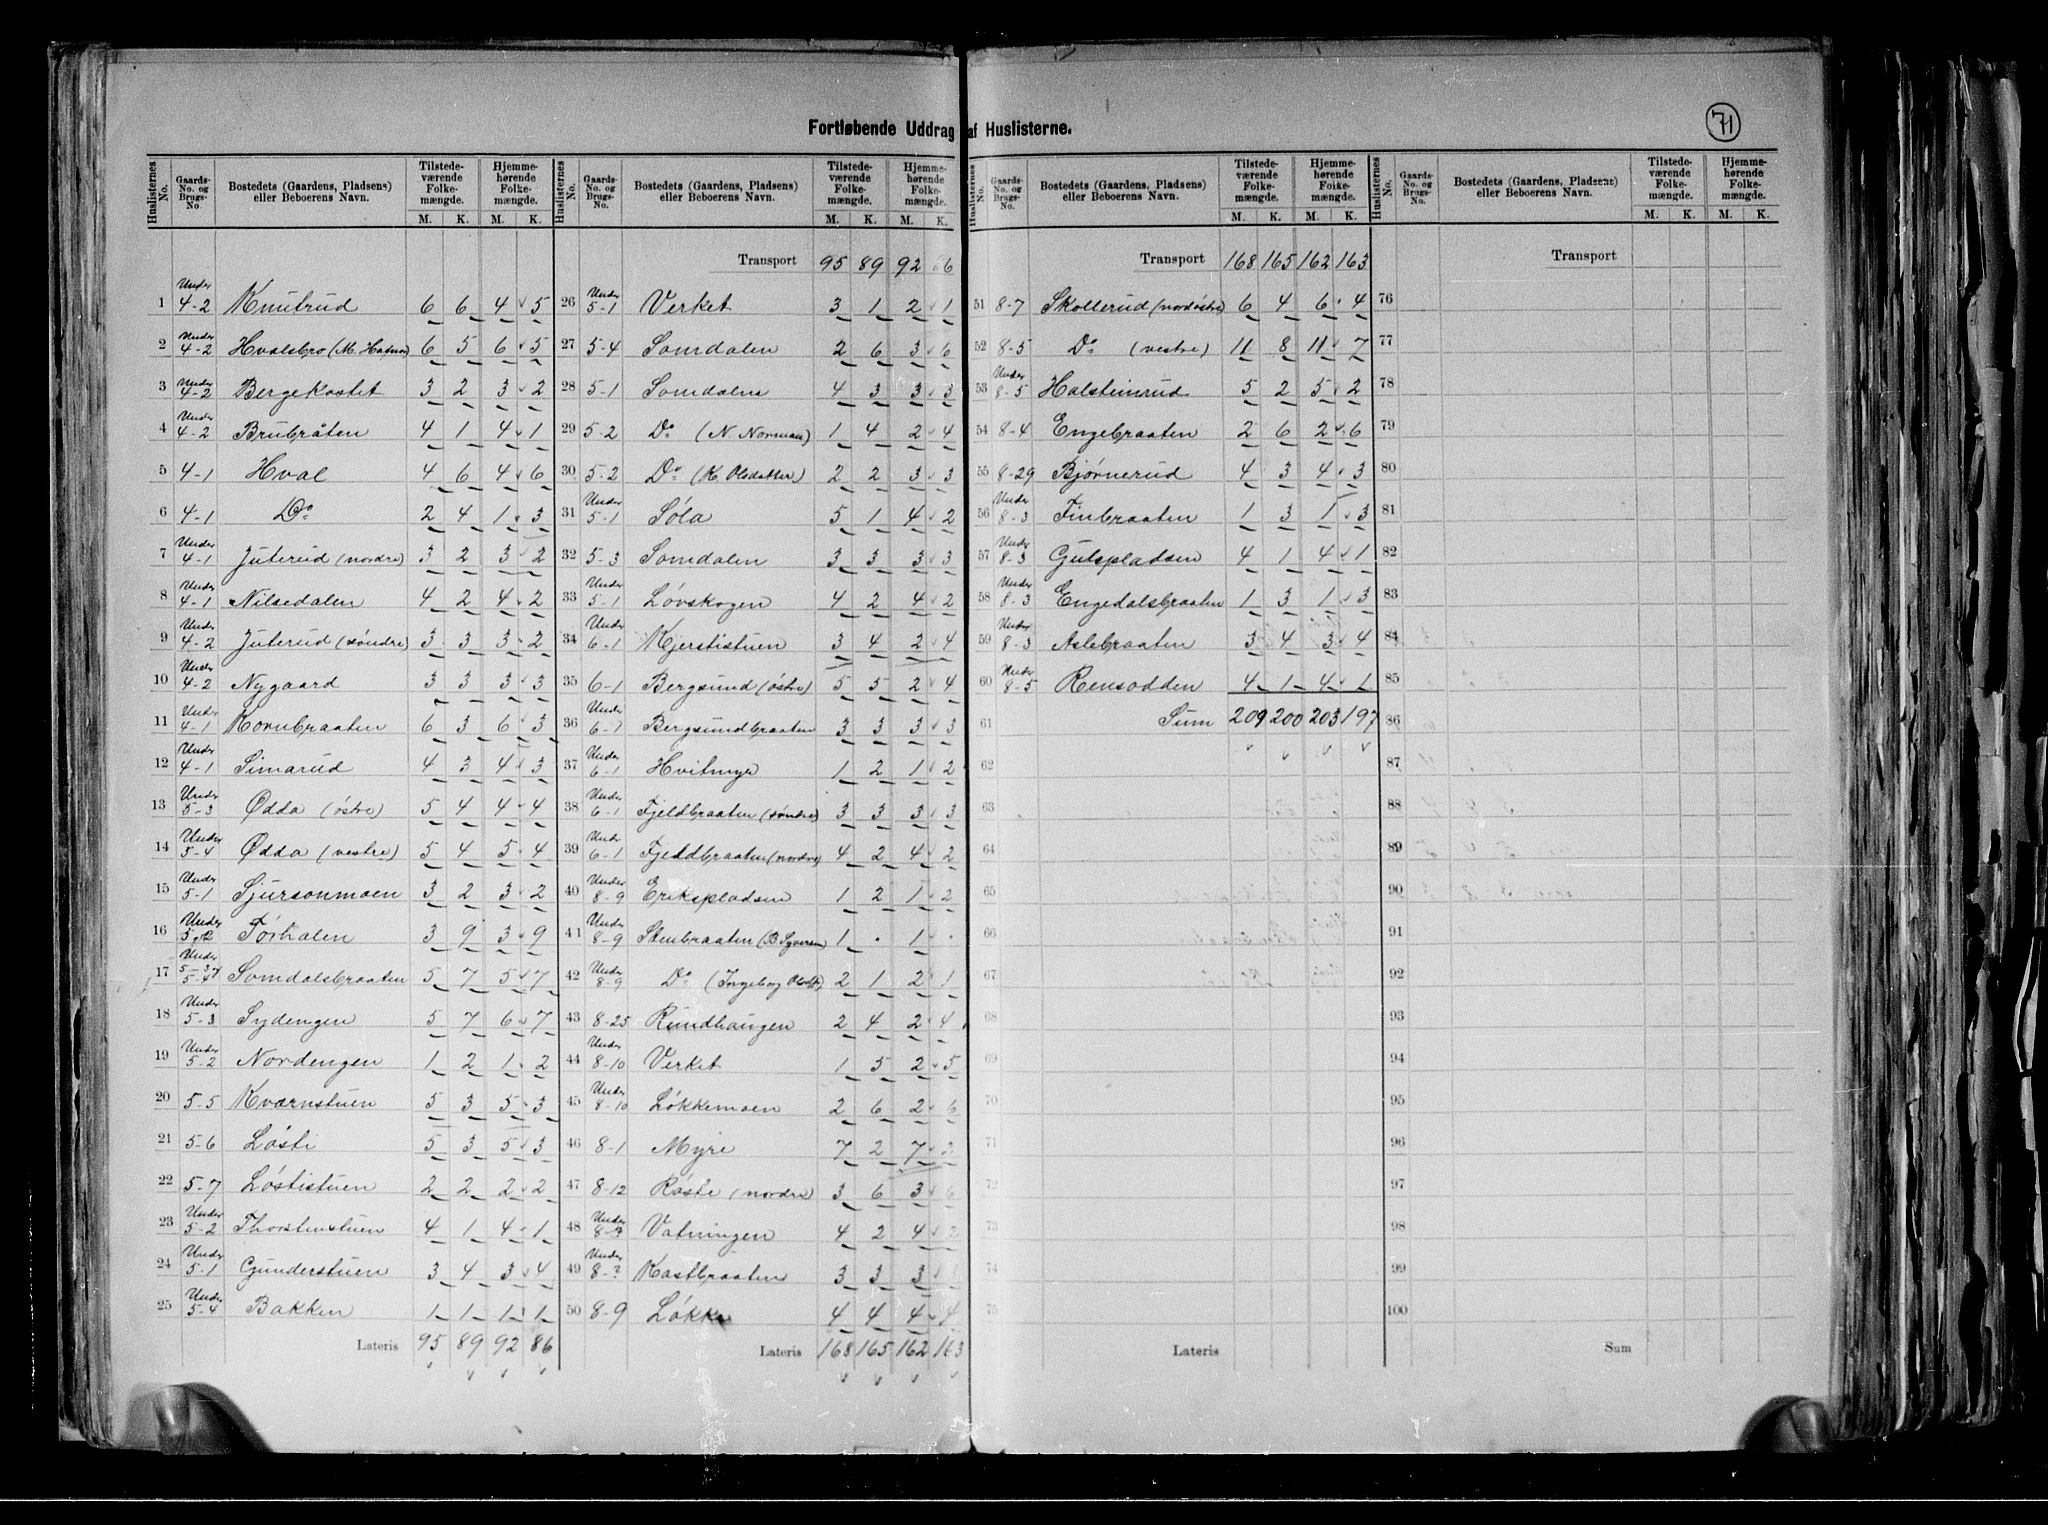 71
Fortløbende Uddrag af Huslisterne.
Huslisternes No. Gaards-No. og Brugs-No. Bostedets (Gaardens, Pladsens) eller Beboerens Navn. Tilstedeværende Folkemængde. M. K. Hjemmehørende Folkemængde. M. K.
1 Under 4-2 Knutrud 6 6 4 5
2 Under 4-2 Hvalsbro 6 5 6 5
3 Under 4-2 Bergekastet 3 2 3 2
4 Under 4-2 Brubråten 4 1 4 1
5 4-1 Hval 4 6 4 6
6 4-1 Do 2 4 1 3
7 Under 4-1 Juterud (nordre) 3 2 3 2
8 Under 4-1 Nilsedalen 4 2 4 2
9 Under 4-2 Juterud (søndre) 3 3 3 2
10 Under 4-2 Nygaard 3 3 3 3
11 Under 4-1 Kornbraaten 6 3 6 3
12 Under 4-1 Simarud 4 3 4 3
13 Under 5-3 Ødda (østre) 5 4 4 4
14 Under 5-4 Ødda (vestre) 5 4 5 4
15 Under 5-1 Sjursonmoen 3 2 3 2
16 Under Førhalen 3 9 3 9
17 Under 5-3 5-4 Somdalsbraaten 5 7 5 7
18 Under 5-3 Sydengen 5 7 6 7
19 Under 5-2 Nordengen 1 2 1 2
20 5-5 Kværnstuen 5 3 5 3
21 5-6 Løsti 5 3 5 3
22 5-7 Løstistuen 2 2 2 2
23 Under 5-2 Thorstenstuen 4 1 4 1
24 Under 5-1 Gunderstuen 3 4 3 4
25 Under 5-4 Bakken 1 1 1 1
Lateris 95 89 92 86
Huslisternes No. Gaards-No. og Brugs-No. Bostedets (Gaardens, Pladsens) eller Beboerens Navn. Tilstedeværende Folkemængde. M. K. Hjemmehørende Folkemængde. M. K.
Transport 95 89 92 86
26 Under 5-1 Verket 3 1 2 1
27 5-4 Somdalen 2 6 3 6
28 5-1 Somdalen 4 3 3 3
29 5-2 Do (N. Norman) 1 4 2 4
30 5-2 Do (K. Olsdatter) 2 2 3 3
31 Under 5-1 Søla 5 1 4 2
32 5-3 Somdalen 3 3 3 3
33 Under 5-1 Løvskogen 4 2 4 2
34 Under 6-1 Kjerstistuen 3 4 2 4
35 6-1 Bergsund (østre) 5 5 2 4
36 Under 6-1 Bergsundbraaten 3 3 3 3
37 Under 6-1 Hvitmyr 1 2 1 2
38 Under 6-1 Fjeldbraaten (søndre) 3 3 3 3
39 Und. 6-1 Fjeldbraaten (nordre) 4 2 4 2
40 Under 8-9 Erikspladsen 1 2 1 2
41 Under 8-9 Stenbraaten (B Syversen) 1 · 1 ·
42 Under 8-9 Do (Ingeborg Olsdt) 2 1 2 1
43 8-25 Rundhaugen 2 4 2 4
44 Under 8-10 Verket 1 5 2 5
45 Under 8-10 Løkkemoen 2 6 2 6
46 8-1 Myre 7 2 7 2
47 8-12 Røste (nordre) 3 6 3 6
48 Under Vatningen 4 2 4 2
49 Under Kastbraaten 3 3 3 3
50 8-9 Løkke 4 4 4 4
Lateris 168 165 162 163
Huslisternes No. Gaards-No. og Brugs-No. Bostedets (Gaardens, Pladsens) eller Beboerens Navn. Tilstedeværende Folkemængde. M. K. Hjemmehørende Folkemængde. M. K.
Transport 168 165 162 163
51 8-7 Skollerud (nordøstre) 6 4 6 4
52 8-5 Do (vestre) 11 8 11 7
53 Under 8-5 Halsteinrud 5 2 5 2
54 8-4 Engebraaten 2 6 2 6
55 8-29 Bjørnerud 4 3 4 3
56 Under 8-3 Finbraaten 1 3 1 3
57 Under 8-3 Gulspladsen 4 1 4 1
58 Under 8-3 Engedalsbraaten 1 3 1 3
59 Under 8-3 Aslebraaten 3 4 3 4
60 Under 8-5 Rensodden 4 1 4 1
61 Sum 209 200 203 197
62
63
64
65
66
67
68
69
70
71
72
73
74
75
Lateris
Huslisternes No. Gaards-No. og Brugs-No. Bostedets (Gaardens, Pladsens) eller Beboerens Navn. Tilstedeværende Folkemængde. M. K. Hjemmehørende Folkemængde. M. K.
Transport
76
77
78
79
80
81
82
83
84
85
86
87
88
89
90
91
92
93
94
95
96
97
98
99
100
Sum